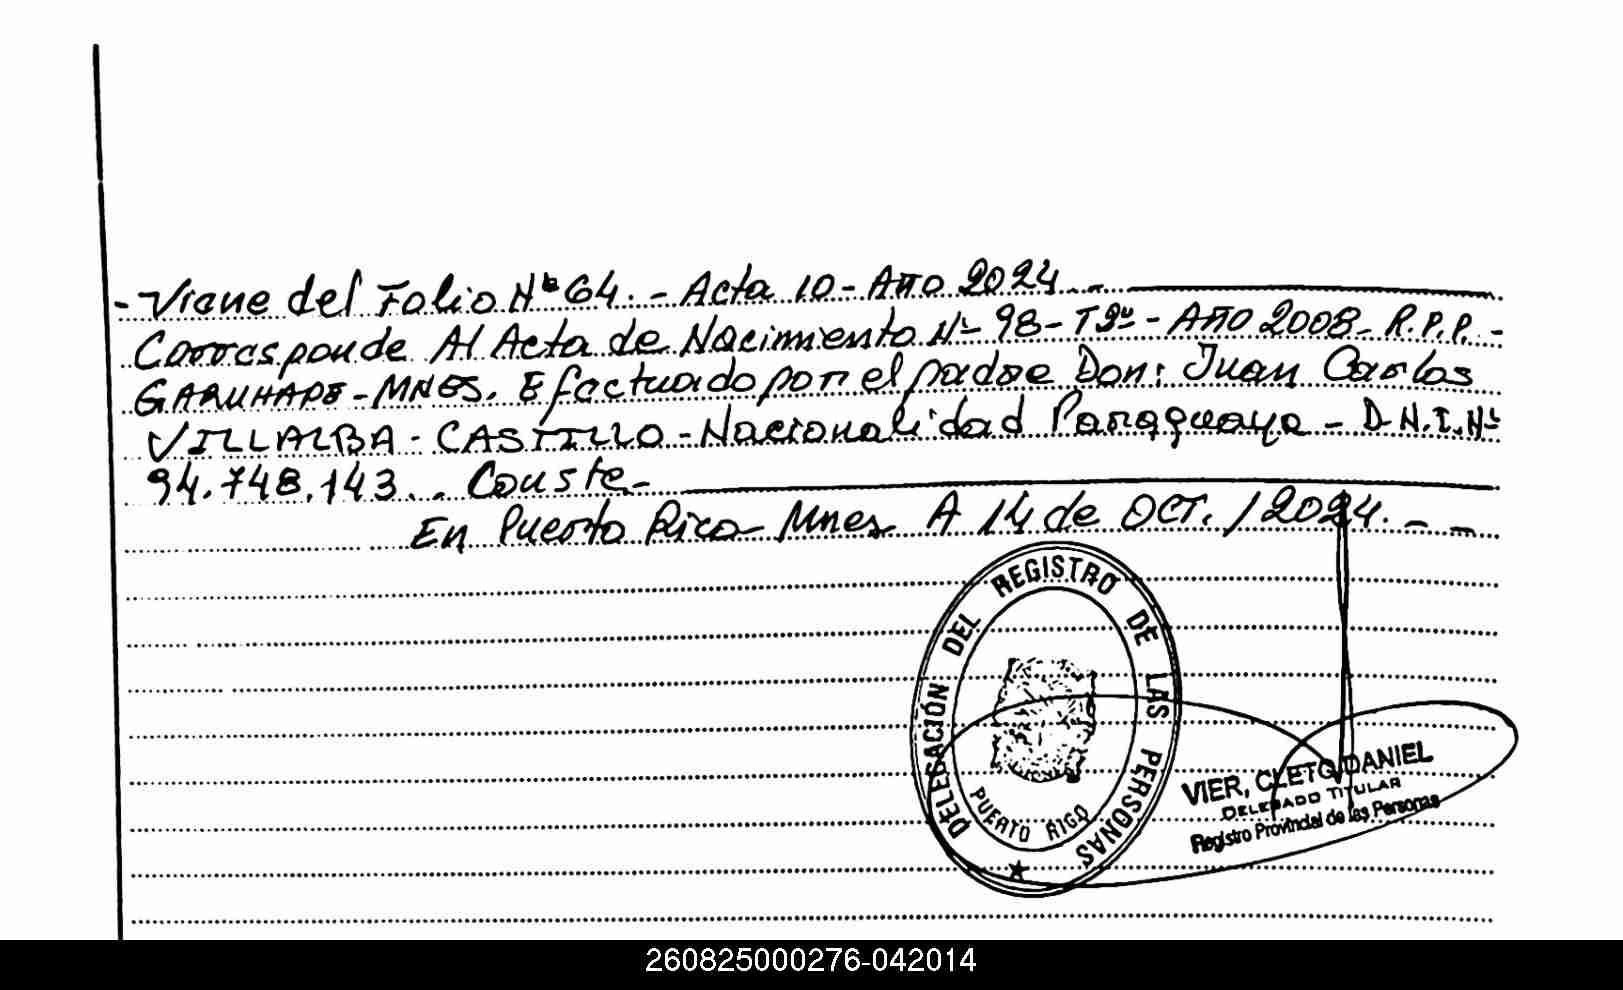 - Viene del Folio Nº 64. - Acta 10 - Año 2024. -
Corresponde Al Acta de Nacimiento Nº 98 - Tº - Año 2008 - R.P.P. -
GARUHAPE - MNES. Efectuado por el padre Don: Juan Carlos
VILLALBA - CASTILLO - Nacionalidad Paraguaya - D.N.I. Nº
94.748.143. . Conste -
En Puerto Rico Mnes A 14 de OCT. / 2024. - -
DELEGACIÓN DEL REGISTRO DE LAS PERSONAS
PUERTO RICO
VIER, CLETO DANIEL
DELEGADO TITULAR
Registro Provincial de las Personas
260825000276-042014